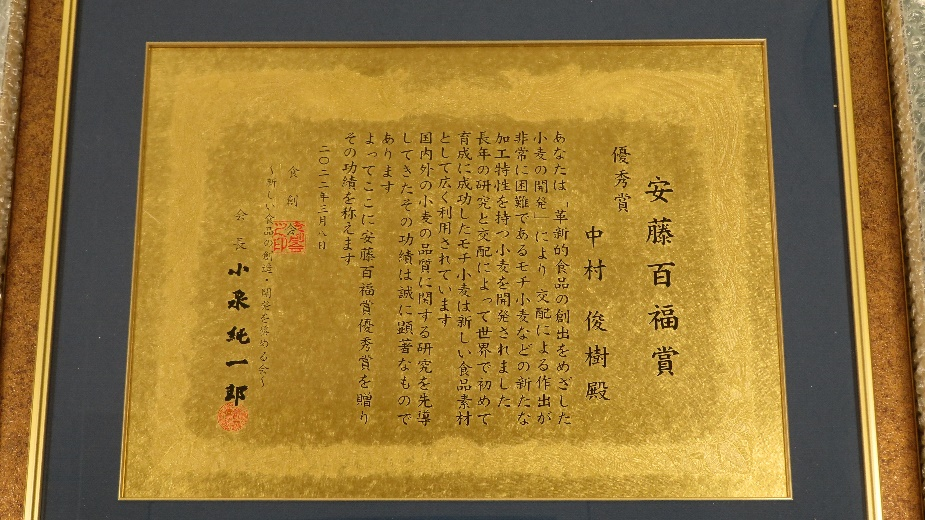 安藤百福賞
優秀賞
中村 俊樹 殿
あなたは「革新的食品の創出をめざした
小麦の開発」により 交配による作出が
非常に困難であるモチ小麦などの新たな
加工特性を持つ小麦を開発されました
長年の研究と交配によって世界で初めて
育成に成功したモチ小麦は新しい食品素材
として広く利用されています
国内外の小麦の品質に関する研究を先導
してきたその功績は誠に顕著なもので
あります
よってここに安藤百福賞優秀賞を贈り
その功績を称えます
二〇二二年三月八日
食創会
〜新しい食品の創造・開発を奨める会〜
会長 小泉純一郎